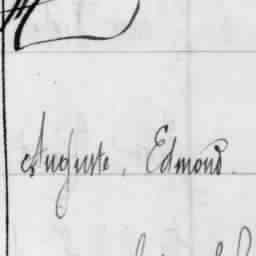 Auguste, Edmond.